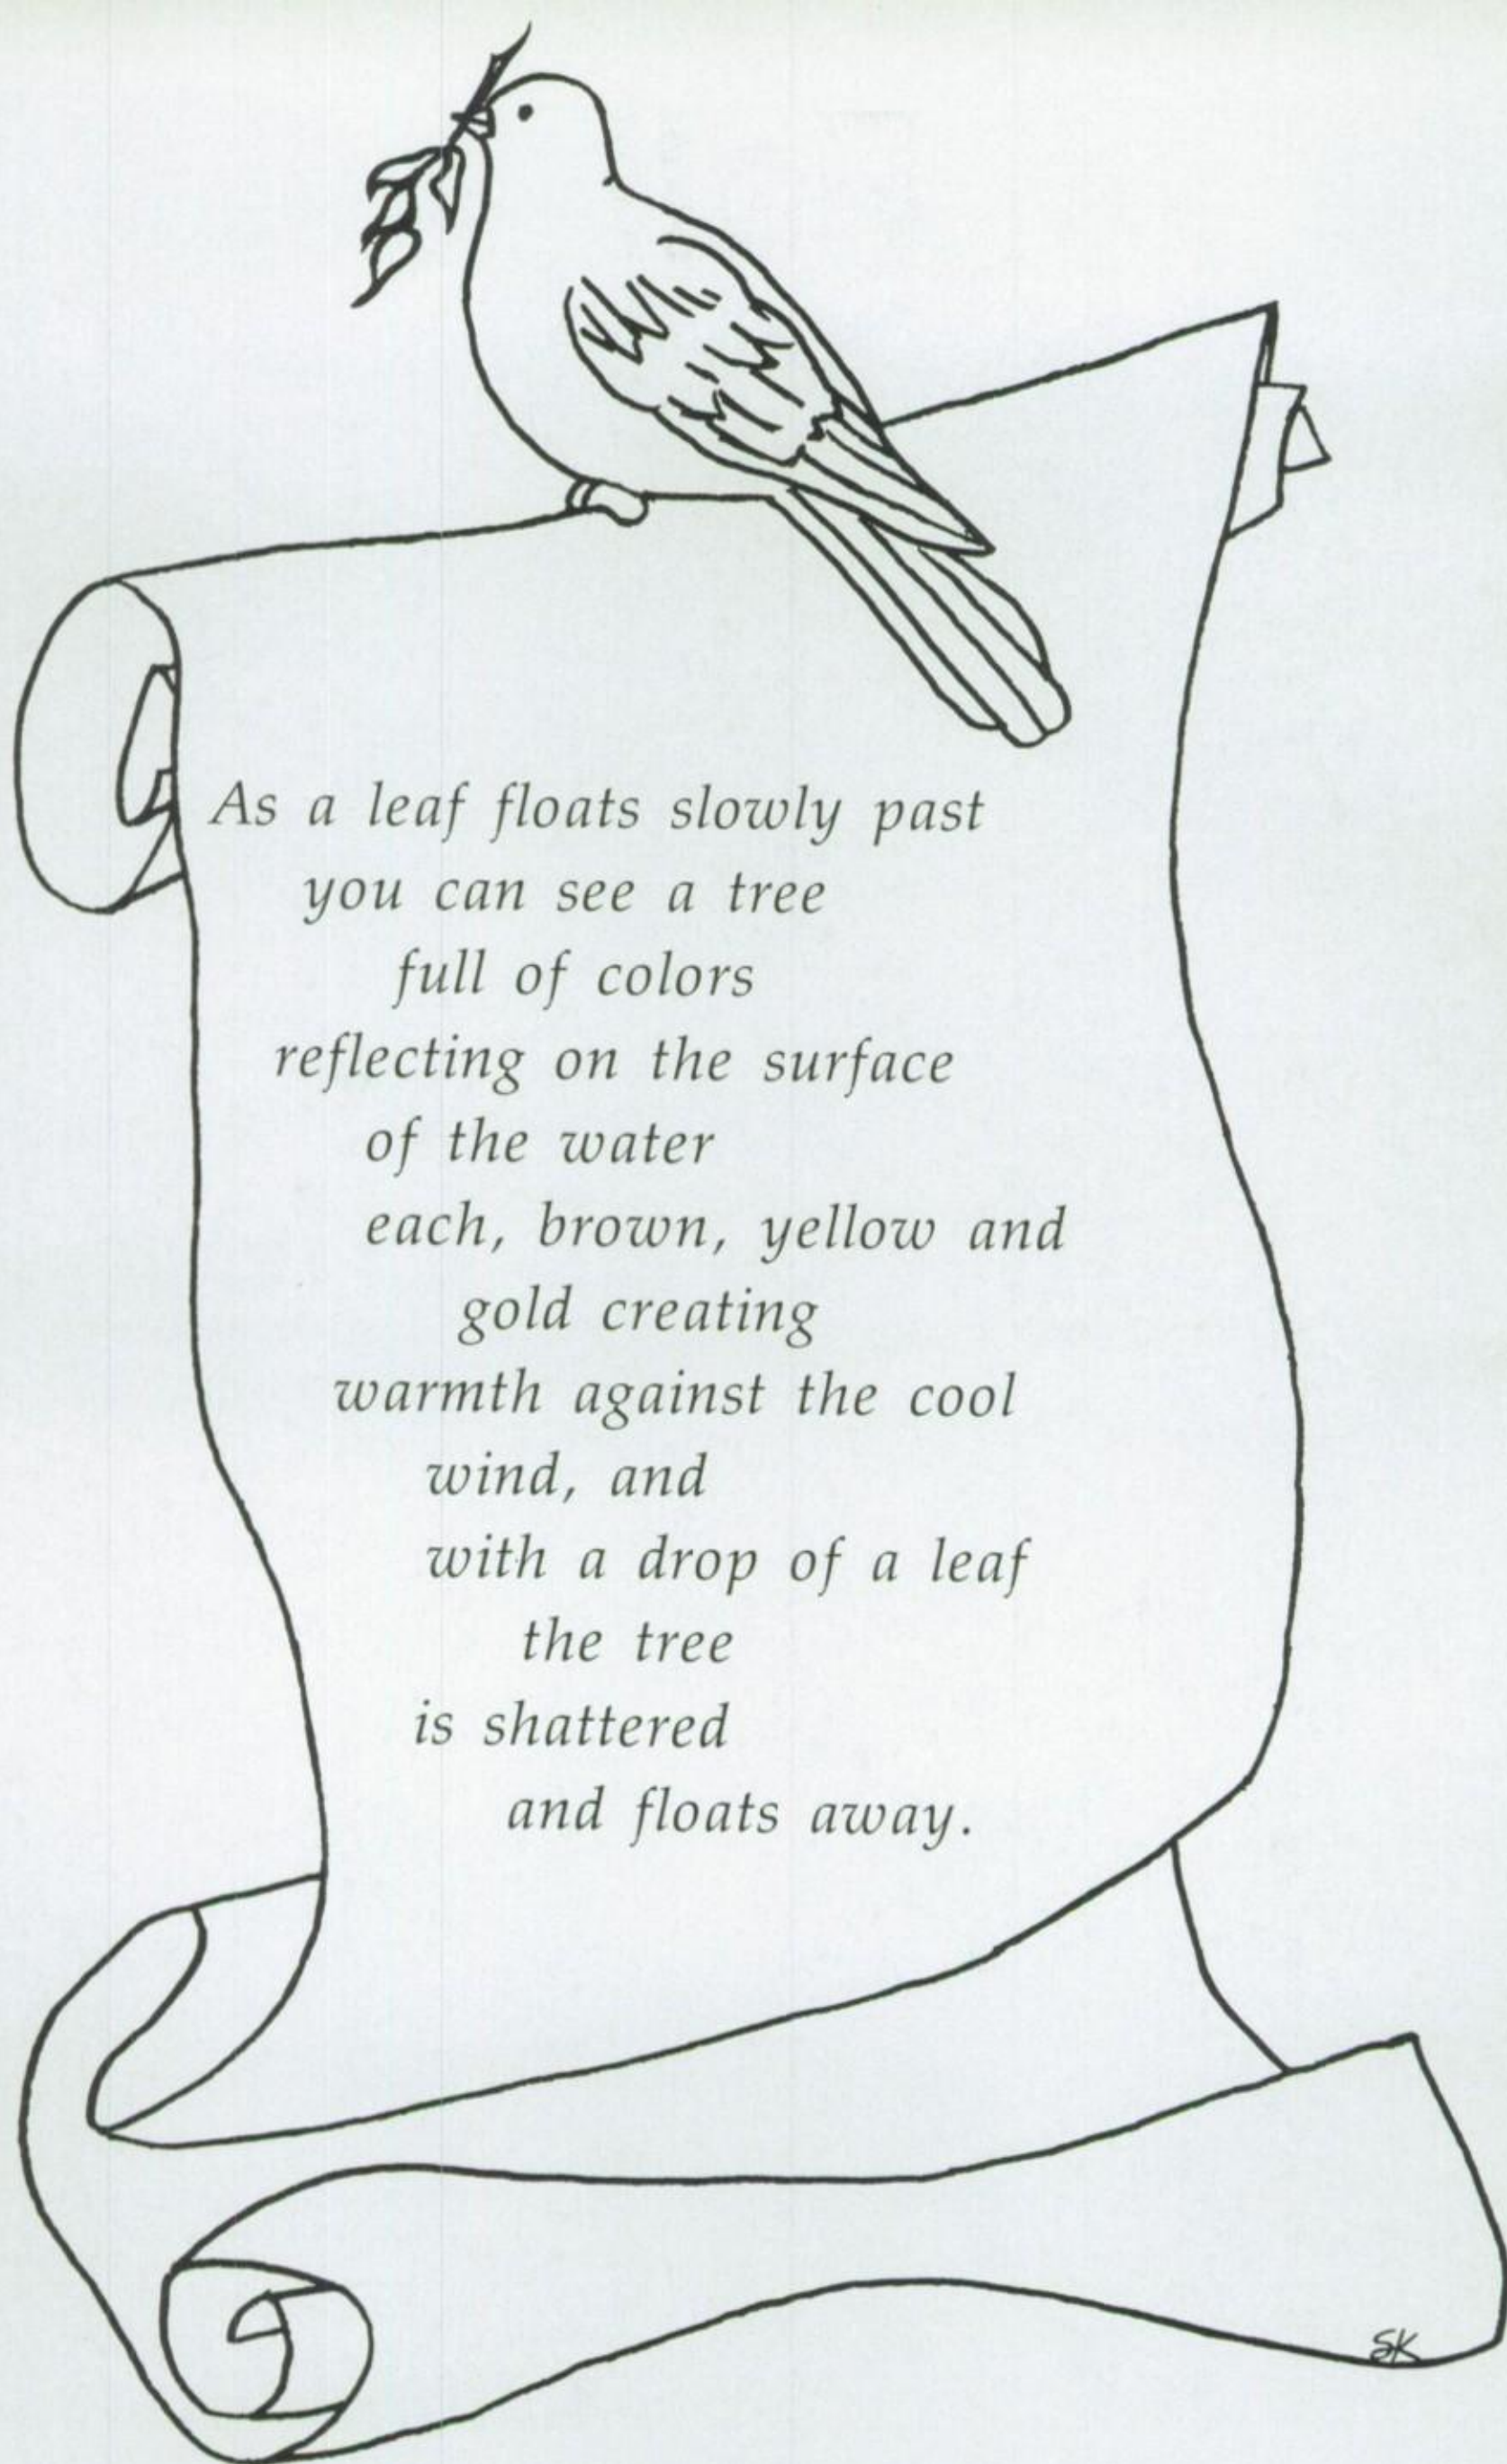 As a leaf floats slowly past
you can see a tree
full of colors
reflecting on the surface
of the water
each, brown, yellow and
gold creating
warmth against the cool
wind, and
with a drop of a leaf
the tree
is shattered
and floats away.
SK